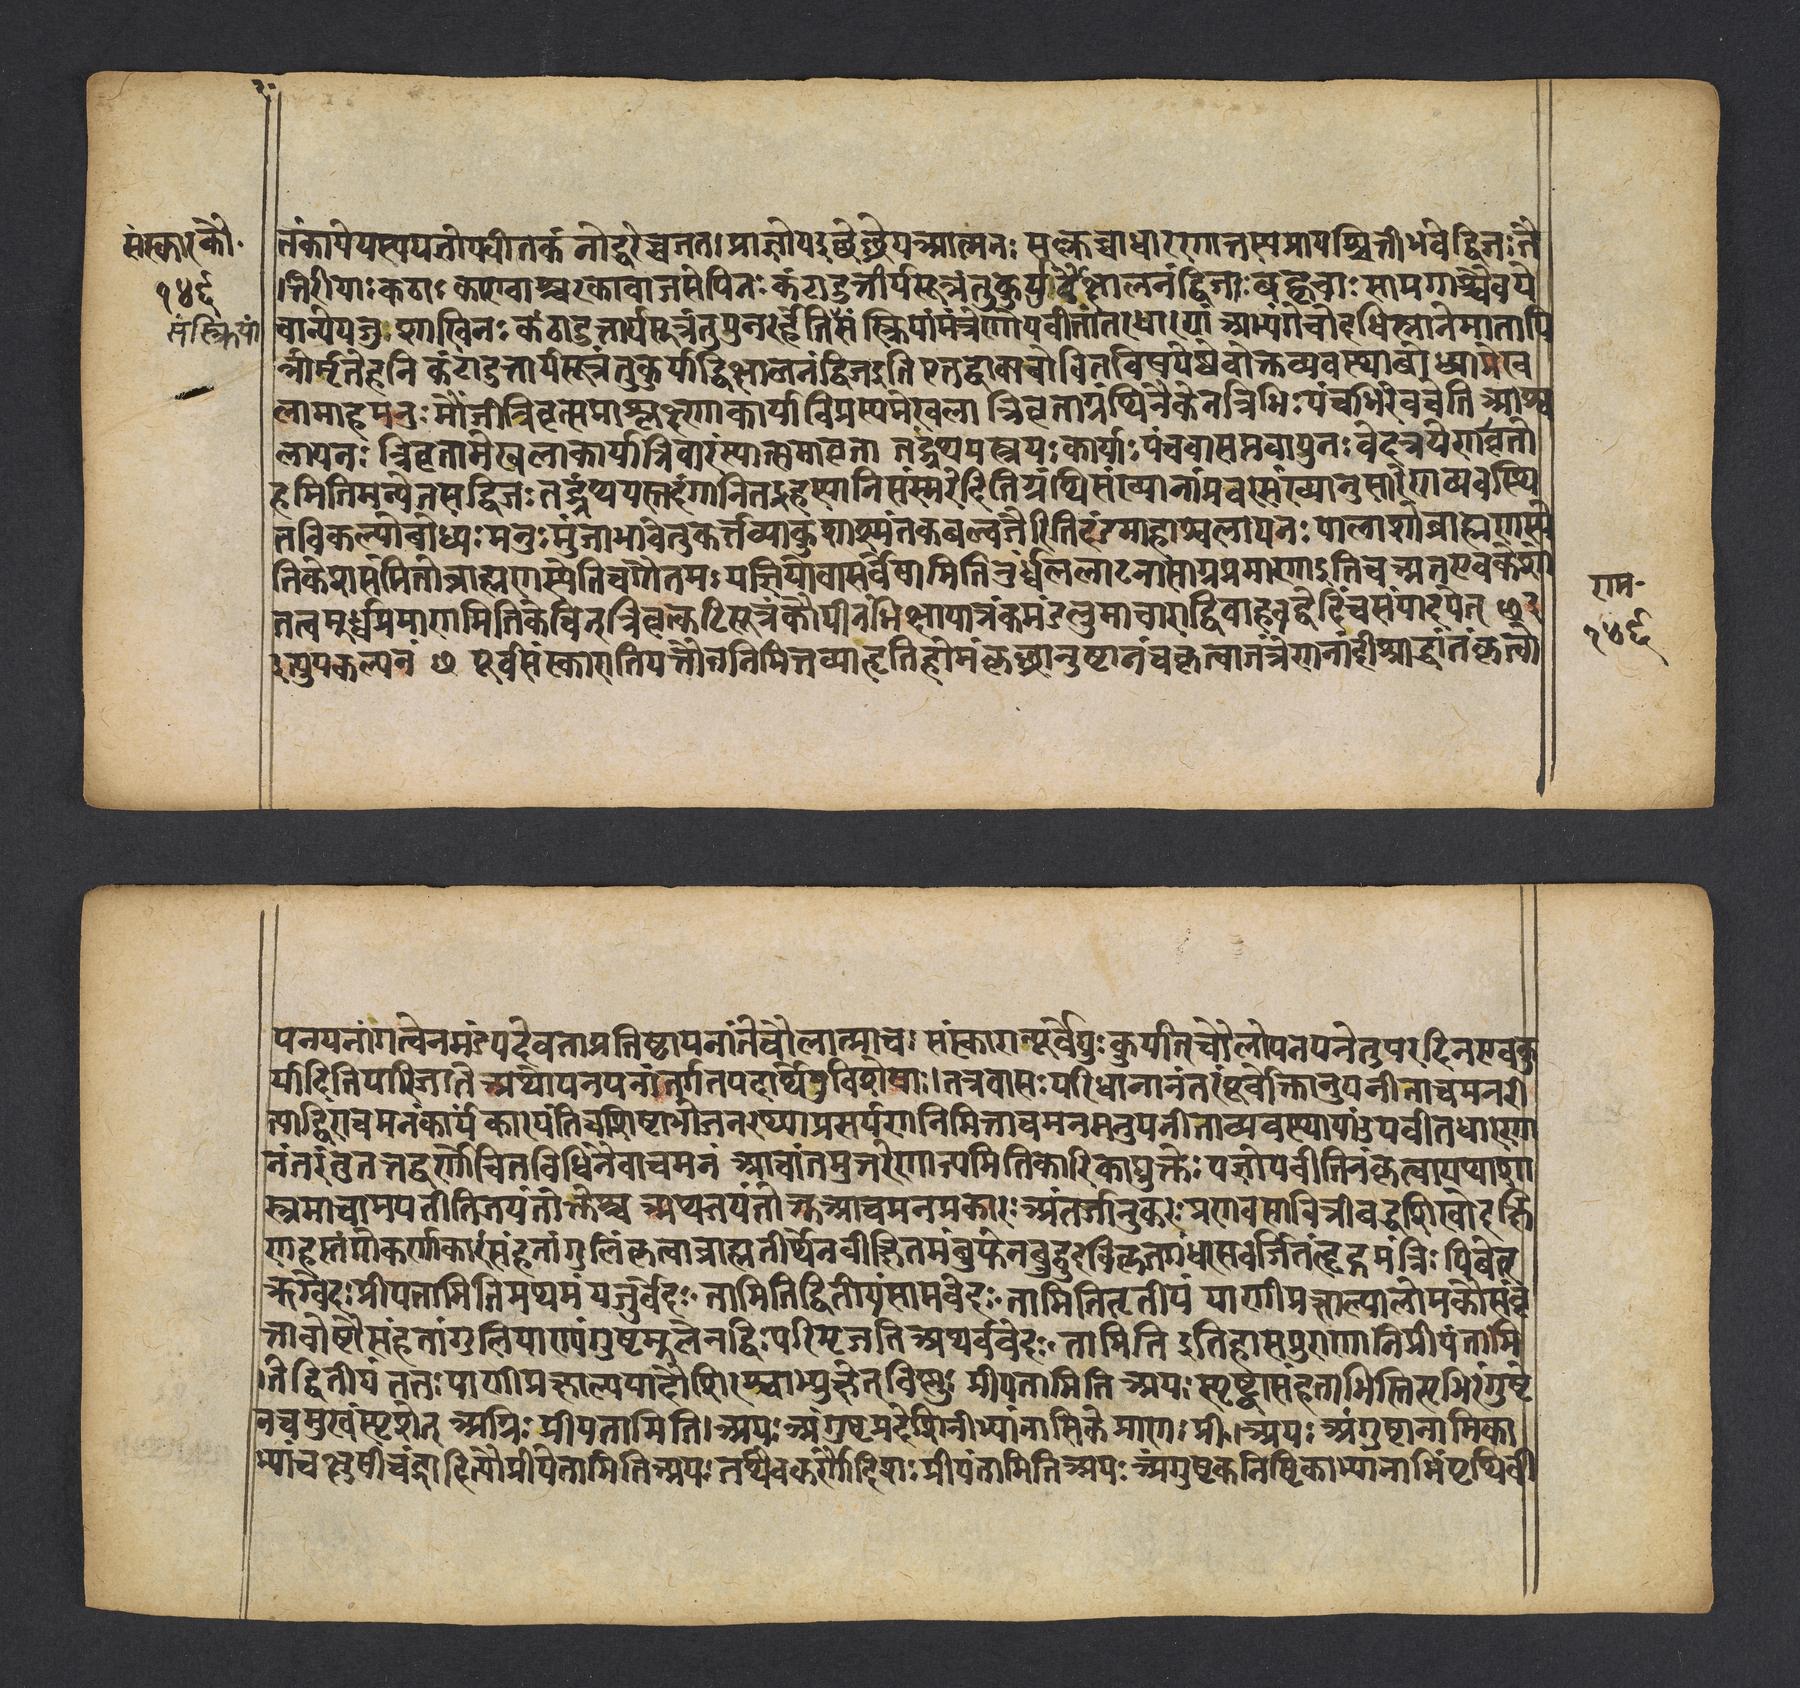 संस्कारकौ॰
१४६
संस्क्रियां
तंकायेयस्ययज्ञोपवीतकं नोद्धरेच्चततः प्राज्ञोयइच्छेच्छ्रेयआत्मनः सकृच्चोधारणात्तस्यप्रायश्चित्तीभवेद्द्विजः तै
त्तिरीयाः कठाः काण्वाश्चरकावाजसेयिनः कंठादुत्तीर्यसूत्रंतुकुर्युर्वैक्षालनंद्विजाः बह्वृचाः सामगाश्चैवये
चान्येयजुः शाखिनः कंठादुत्तार्यसूत्रंतुपुनरर्हंतिसंस्क्रियांमंत्रेणोपवीतांतरधारणं अभ्यंगेचोदधिस्नानेमातापि
त्रोर्मृतेहनि कंठादुत्तार्यसूत्रंतुकुर्याद्विक्षालनंद्विजइति एतद्वाक्योचितविप्रयेष्वेवोक्तव्यवस्थाबोध्या मेख
लामाहमनुः मौंजीत्रिवृत्समाश्लक्ष्णाकार्याविप्रस्यमेखला त्रिवृताग्रंथिनैकेनत्रिभिः पंचभिरेवचेति आश्व
लायनः त्रिवृतामेखलाकार्यात्रिवारंस्यात्समावृता तद्ग्रंथयस्त्रयः कार्याः पंचवासप्तवापुनः वेदत्रयेणावृतो
हमितिमन्येतसद्विजः तद्ग्रंथयस्तदंगानितद्रहस्यानिसंस्मरेदिति ग्रंथिसंख्यानांप्रवरसंख्यानुसारेणव्यवस्थि
तविकल्पोबोध्यः मनुः मुंजाभावेतुकर्त्तव्याकुशाश्मंतकबल्वजैरिति दंडमाहाश्वलायनः पालाशोब्राह्मणस्ये
तिकेशसंमितोब्राह्मणस्येतिचगौतमः यज्ञियोवासर्वेषामितिऊर्ध्वललाटनासाग्रप्रमाणइतिच अतएवकेशां
तलमूर्ध्वप्रमाणमितिकेचित् त्रिवृत्कटिसूत्रंकौपीनंभिक्षापात्रंकमंडलुमाचाराद्विवाहवद्वेदिंचसंपादयेत् ॥
इत्युपकल्पनं ॥ पूर्वसंस्कारातिपत्तौतन्निमित्तव्याहृतिहोमंकृच्छ्रानुष्टानंचकृत्वातंत्रेणनांदीश्राद्धांतंकृत्वो
राम॰
१४६
पनयनांगत्वेनमंडपदेवताप्रतिष्ठापनांतेचौलात्प्राच॰ संस्कारात्पूर्वेद्युः कुर्यात् चौलोपनयनेतुपरदिनएवकु
र्यादितिपारिजाते अथोपनयनांतर्गतपदार्थेषुविशेषाः। तत्रवासः परिधानानंतरंपूर्वोक्तानुपनीताचमनरी
त्याद्विराचमनंकार्यं कारयंतिचशिष्टाभोजनरथ्याप्रसर्पणनिमित्ताचमनमनुपनीताव्यवस्थायां उपवीतधारणा
नंतरंतुतत्तद्वर्णोचितविधिनैवाचमनं आचांतमुत्तरेणाग्नमितिकारिकाद्युक्तेः यज्ञोपवीतिनंकृत्वायथाशा
स्त्रमाचामयतीतिजयंतोक्तेश्च अथजयंतोक्तआचमनप्रकारः अंतर्जानुकरः प्रणवसावित्रीबद्धशिखोदक्षि
णहस्तंगोकर्णाकारंसंहतांगुलिंकृत्वाब्राह्मतीर्थेनवीक्षितमंबुफेनबुद्बुदविकृतगंधरसवर्जितंहृद्गमंत्रिः पिबेत्
ऋग्वेदः प्रीयतामितिप्रथमं यजुर्वेदः॰ तामितिद्वितीयंसामवेदः॰ तामितितृतीयं पाणीप्रक्षाल्यालोमकौसंवृ
त्तावोष्ठौसंहतांगुलिपाण्यंगुष्टमूलेनद्विः परिमृजति अथर्ववेदः॰ तामिति इतिहासपुराणानिप्रीयंतामि
तिद्वितीयं ततः पाणीप्रक्षाल्यपादौशिरश्चाभ्युक्षेत् विष्णुः प्रीयतामिति अपः स्पृष्ट्वासंहताभिस्तिसृभिरंगुष्टे
नचमुखंस्पृशेत् अग्निः प्रीयतामिति। अपः अंगुष्टप्रदेशिनीभ्यांनासिके प्राणः प्री॰। अपः अंगुष्टानामिका
भ्यांचक्षुषीचंद्रादित्यौप्रीयेतामिति अपः तथैवकर्णौदिशः प्रीयंतामिति अपः अंगुष्टकनिष्ठिकाभ्यांनाभिंपृथिवी